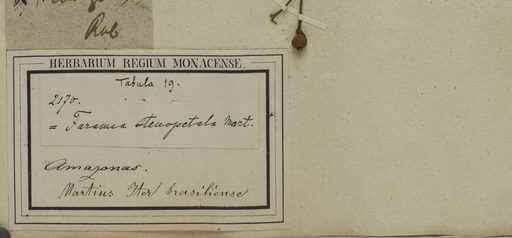 Rub
HERBARIUM REGIUM MONACENSE
Tabula 19.
2170.
= Faramea stenopetala Mart.
Amazonas.
Martius Iter brasiliense